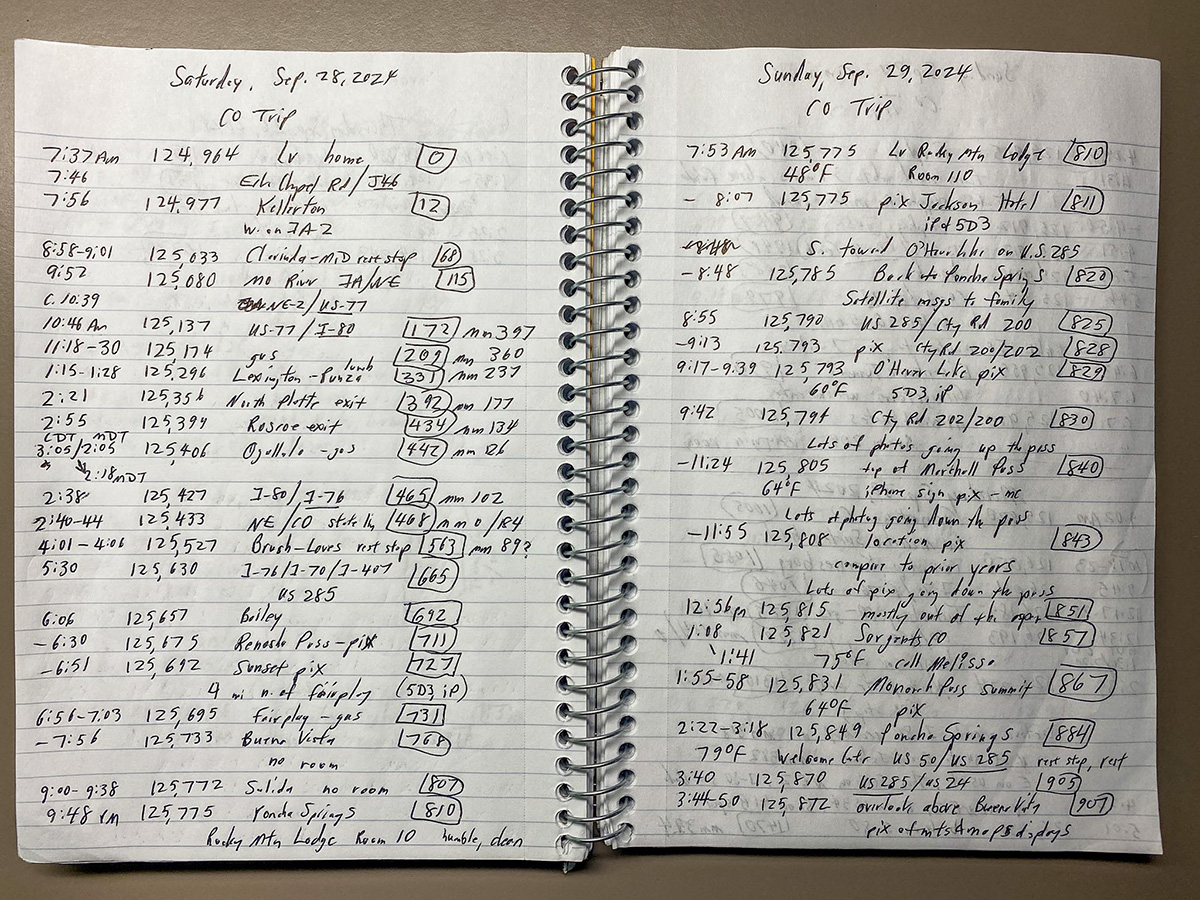 Saturday, Sep. 28, 2024
CO Trip
7:37 Am 124,964 Lv home 0
7:46 Chapel Rd / J46
7:56 124,977 Kellerton 12
W. on IA-2
8:58-9:01 125,033 Clarinda - rest stop 68
9:52 125,080 Mo River IA/NE 115
c. 10:39 NE-2/US-77
10:46 Am 125,137 US-77/I-80 172 mm 397
11:18-30 125,174 gas 209 mm 360
1:15-1:28 125,296 Lexington - Runza lunch 331 mm 237
2:21 125,356 North Platte exit 392 mm 177
2:55 125,399 Roscoe exit 434 mm 134
CDT MDT
3:05/2:05 125,406 Ogallala - gas 442 mm 126
2:18 MDT
2:38 125,427 I-80/I-76 465 mm 102
2:40-44 125,433 NE/CO state line 468 mm 0/184
4:01-4:06 125,527 Brush - Loves rest stop 563 mm 89?
5:30 125,630 I-76/I-70/I-407 665
US 285
6:06 125,657 Bailey 692
-6:30 125,675 Kenosha Pass - pix 711
-6:51 125,692 Sunset pix 727
4 mi n. of Fairplay (5D3 iP)
6:56-7:03 125,695 Fairplay - gas 731
-7:56 125,733 Buena Vista 768
no room
9:00-9:38 125,772 Salida no room 807
9:48 PM 125,775 Poncha Springs 810
Rocky Mtn Lodge Room 10 humble, clean
Sunday, Sep. 29, 2024
CO Trip
7:53 Am 125,775 Lv Rocky Mtn Lodge 810
48°F Room 110
- 8:07 125,775 pix Jackson Hotel 811
iP & 5D3
S. toward O'Haver Lake on U.S. 285
- 8:48 125,785 Back to Poncha Springs 820
Satellite msgs to family
8:55 125,790 US 285/Cty Rd 200 825
-9:13 125,793 pix Cty Rd 200/202 828
9:17-9:39 125,793 O'Haver Lake pix 829
60°F 5D3, iP
9:42 125,794 Cty Rd 202/200 830
Lots of photos going up the pass
-11:24 125,805 top of Marshall Pass 840
64°F iPhone sign pix - me
Lots of photog going down the pass
-11:55 125,808 location pix 843
compare to prior years
Lots of pix going down the pass
12:56 pm 125,815 mostly out of the aspen 851
1:08 125,821 Sargents CO 857
1:41 75°F call Melissa
1:55-58 125,831 Monarch Pass summit 867
64°F pix
2:22-3:18 125,849 Poncha Springs 884
79°F Welcome Cntr US 50/US 285 rest stop, rest
3:40 125,870 US 285/US 24 905
3:44-50 125,872 overlook above Buena Vista 907
pix of mts & maps displays